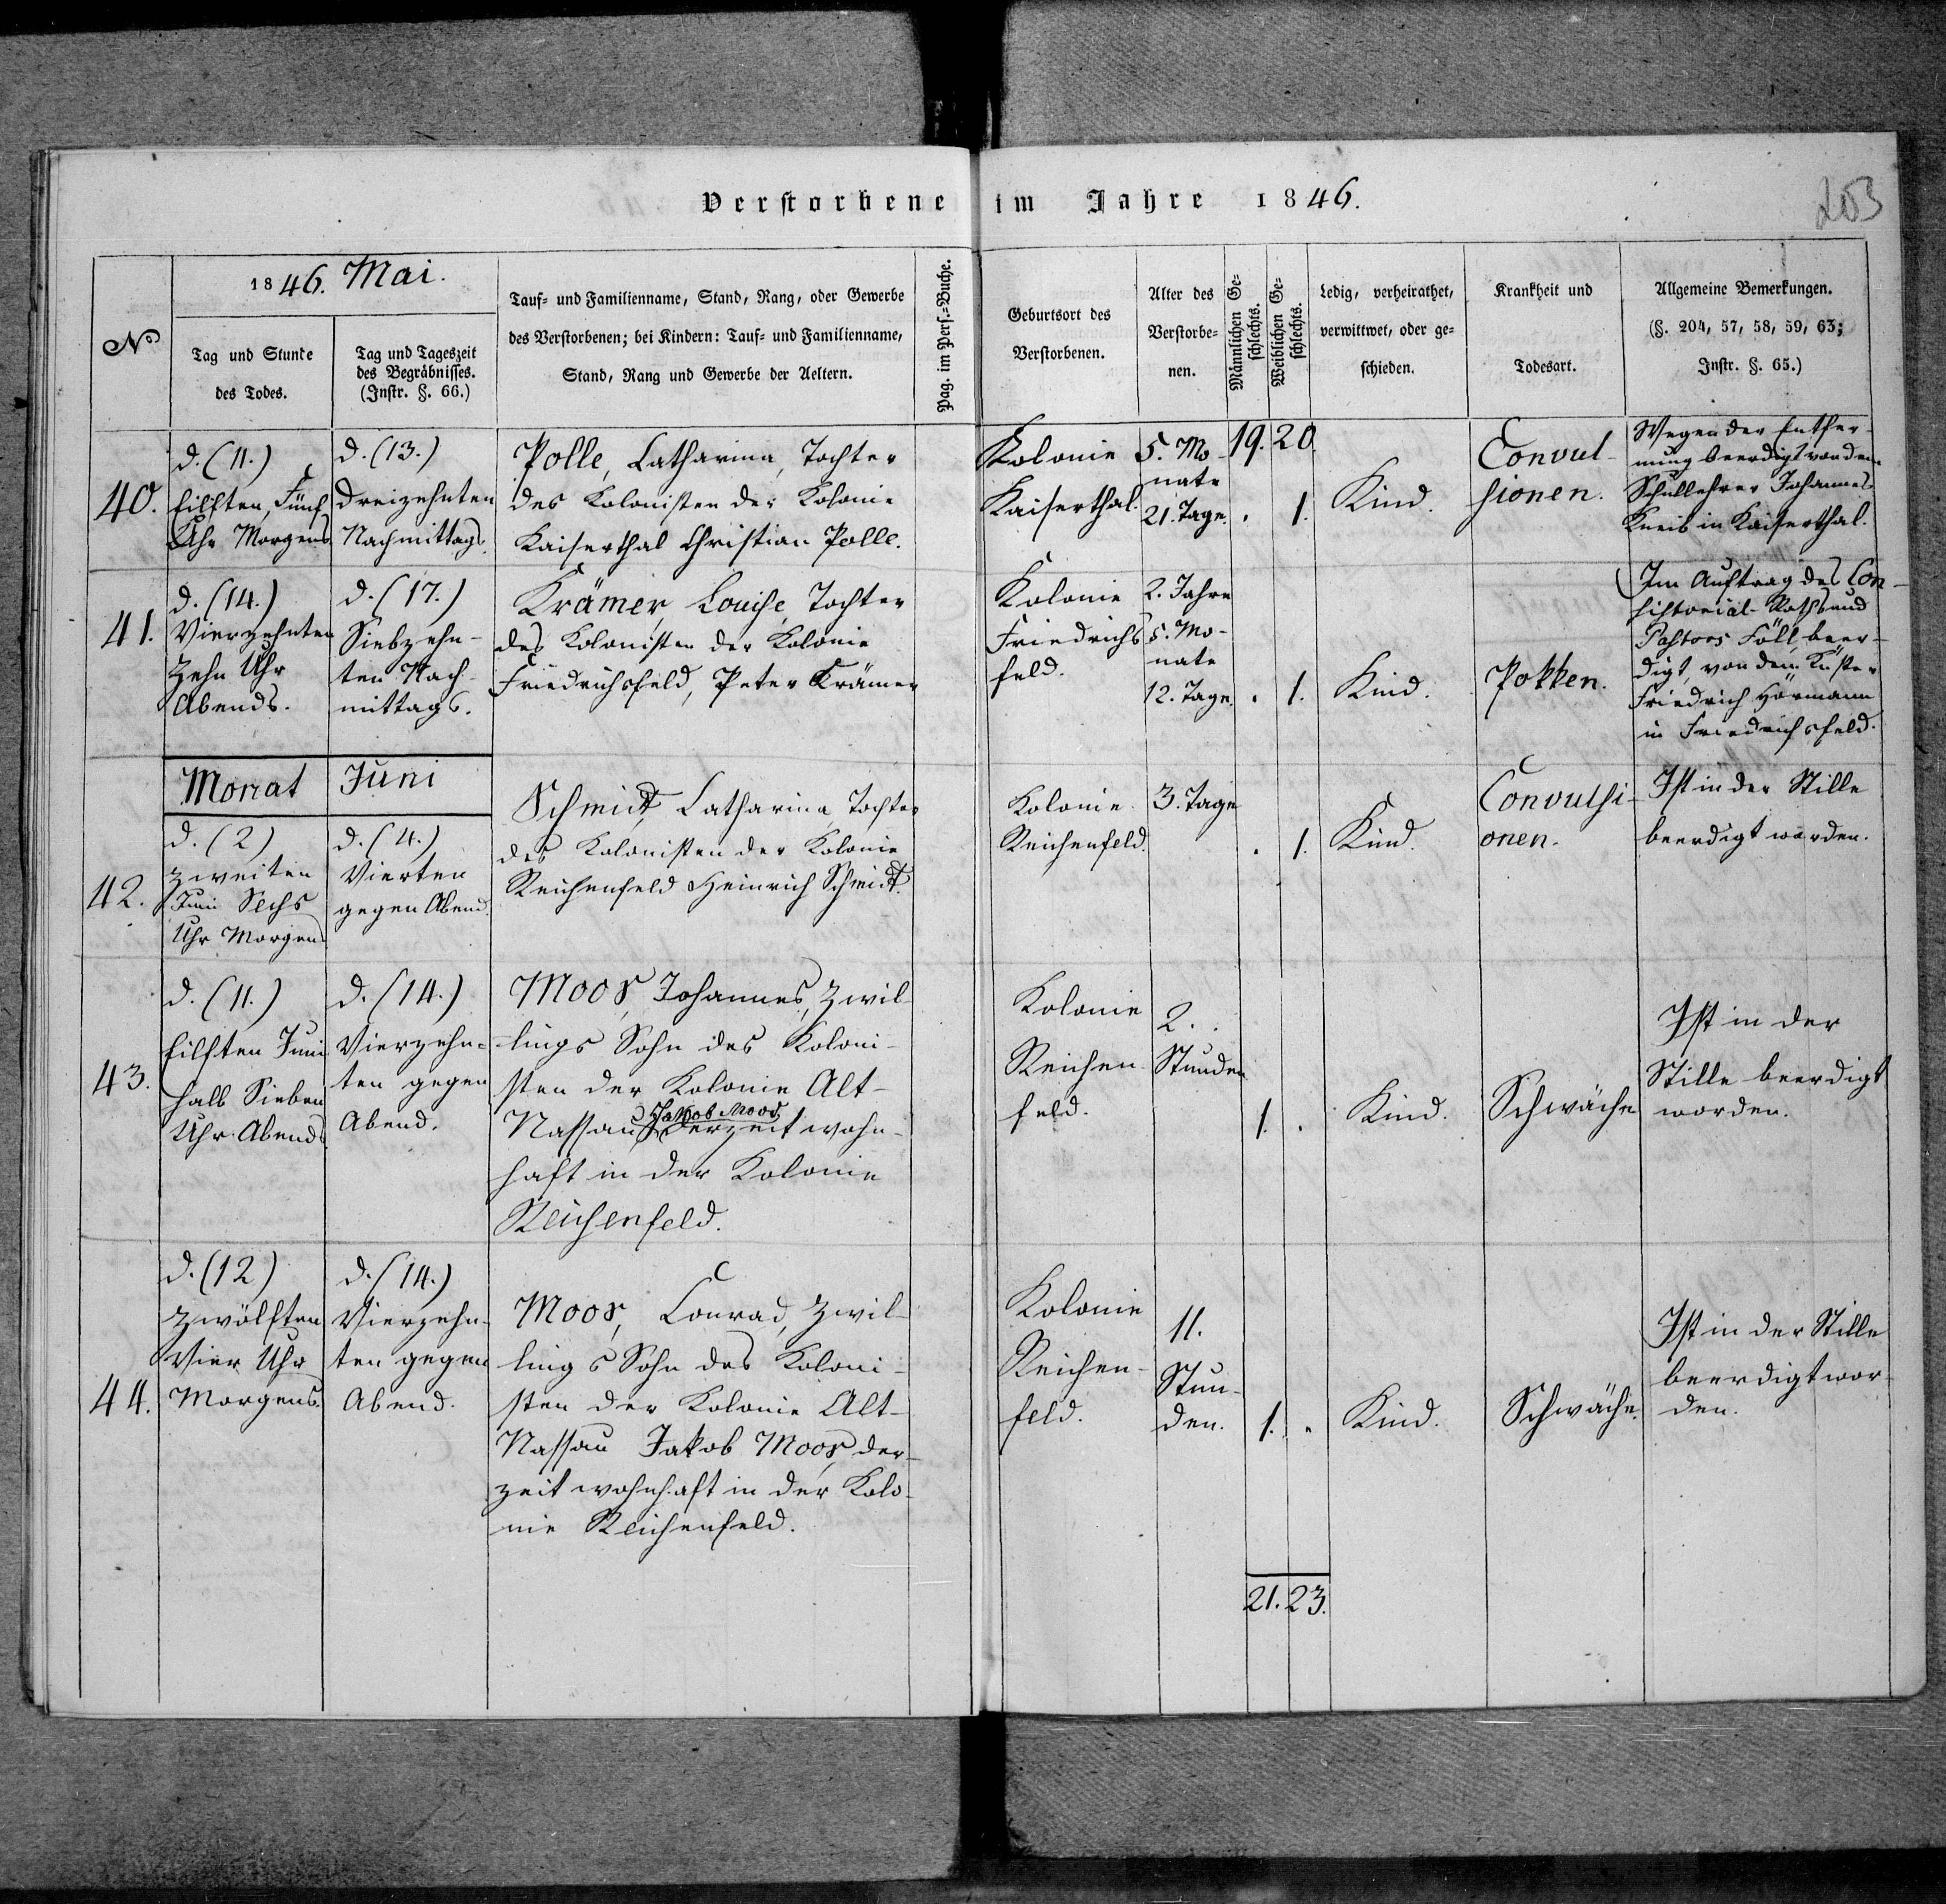 Verstorbene im Jahre 1846.
203
No
1846. Mai.
Tag und Stunde
des Todes.
Tag und Tageszeit
des Begräbnisses.
(Instr. §. 66.)
Tauf- und Familienname, Stand, Rang, oder Gewerbe
des Verstorbenen; bei Kindern: Tauf- und Familienname,
Stand, Rang und Gewerbe der Aeltern.
Pag. im Pers.-Buche.
Geburtsort des
Verstorbenen.
Alter des
Verstorbe-
nen.
Männlichen Ge-
schlechts.
Weiblichen Ge-
schlechts.
Ledig, verheirathet,
verwittwet, oder ge-
schieden.
Krankheit und
Todesart.
Allgemeine Bemerkungen.
(§. 204, 57, 58, 59, 63;
Instr. §. 65.)
40.
d. (11.)
Eilften, Fünf
Uhr Morgens
d. (13.)
Dreizehnten
Nachmittags.
Polle, Catharina, Tochter
des Kolonisten der Kolonie
Kaiserthal Christian Polle.
Kolonie
Kaiserthal.
5. Mo-
nate
21. Tage.
19. 20.
. 1.
Kind.
Convul-
sionen.
Wegen der Entfer-
nung beerdigt von dem
Schullehrer Johannes
Kneib in Kaiserthal.
41.
d. (14.)
Vierzehnten
Zehn Uhr
Abends.
d. (17.)
Siebzehn-
ten Nach-
mittags.
Krämer, Louise, Tochter
des Kolonisten der Kolonie
Friedrichsfeld, Peter Krämer
Kolonie
Friedrichs
feld.
2. Jahre
5. Mo-
nate
12. Tage.
. 1.
Kind.
Pokken.
Im Auftrag des Con-
sistorial-Raths und
Pastors Föll, beer-
digt, von dem Küster
Friedrich Hörmann
in Friedrichsfeld.
Monat Juni
42.
d. (2)
Zweiten
Juni Sechs
Uhr Morgens
d. (4.)
Vierten
gegen Abend.
Schmidt, Catharina, Tochter
des Kolonisten der Kolonie
Reichenfeld Heinrich Schmidt.
Kolonie
Reichenfeld.
3. Tage
. 1.
Kind.
Convulsi-
onen.
Ist in der Stille
beerdigt worden.
43.
d. (11.)
Eilften Juni
halb Sieben
Uhr Abends
d. (14.)
Vierzehn-
ten gegen
Abend.
Moos, Johannes, Zwil-
lings Sohn des Koloni-
sten der Kolonie Alt-
Jakob Moos,
Nassau derzeit wohn-
haft in der Kolonie
Reichenfeld.
Kolonie
Reichen
feld.
2.
Stunden
1. .
Kind.
Schwäche
Ist in der
Stille beerdigt
worden.
44.
d. (12)
Zwölften
Vier Uhr
Morgens.
d. (14.)
Vierzehn-
ten gegen
Abend.
Moos, Conrad, Zwil-
lings Sohn des Koloni-
sten der Kolonie Alt-
Nassau Jakob Moos, der-
zeit wohnhaft in der Kolo-
nie Reichenfeld.
Kolonie
Reichen-
feld.
11.
Stun-
den.
1. .
Kind.
Schwäche.
Ist in der Stille
beerdigt wor-
den.
21. 23.